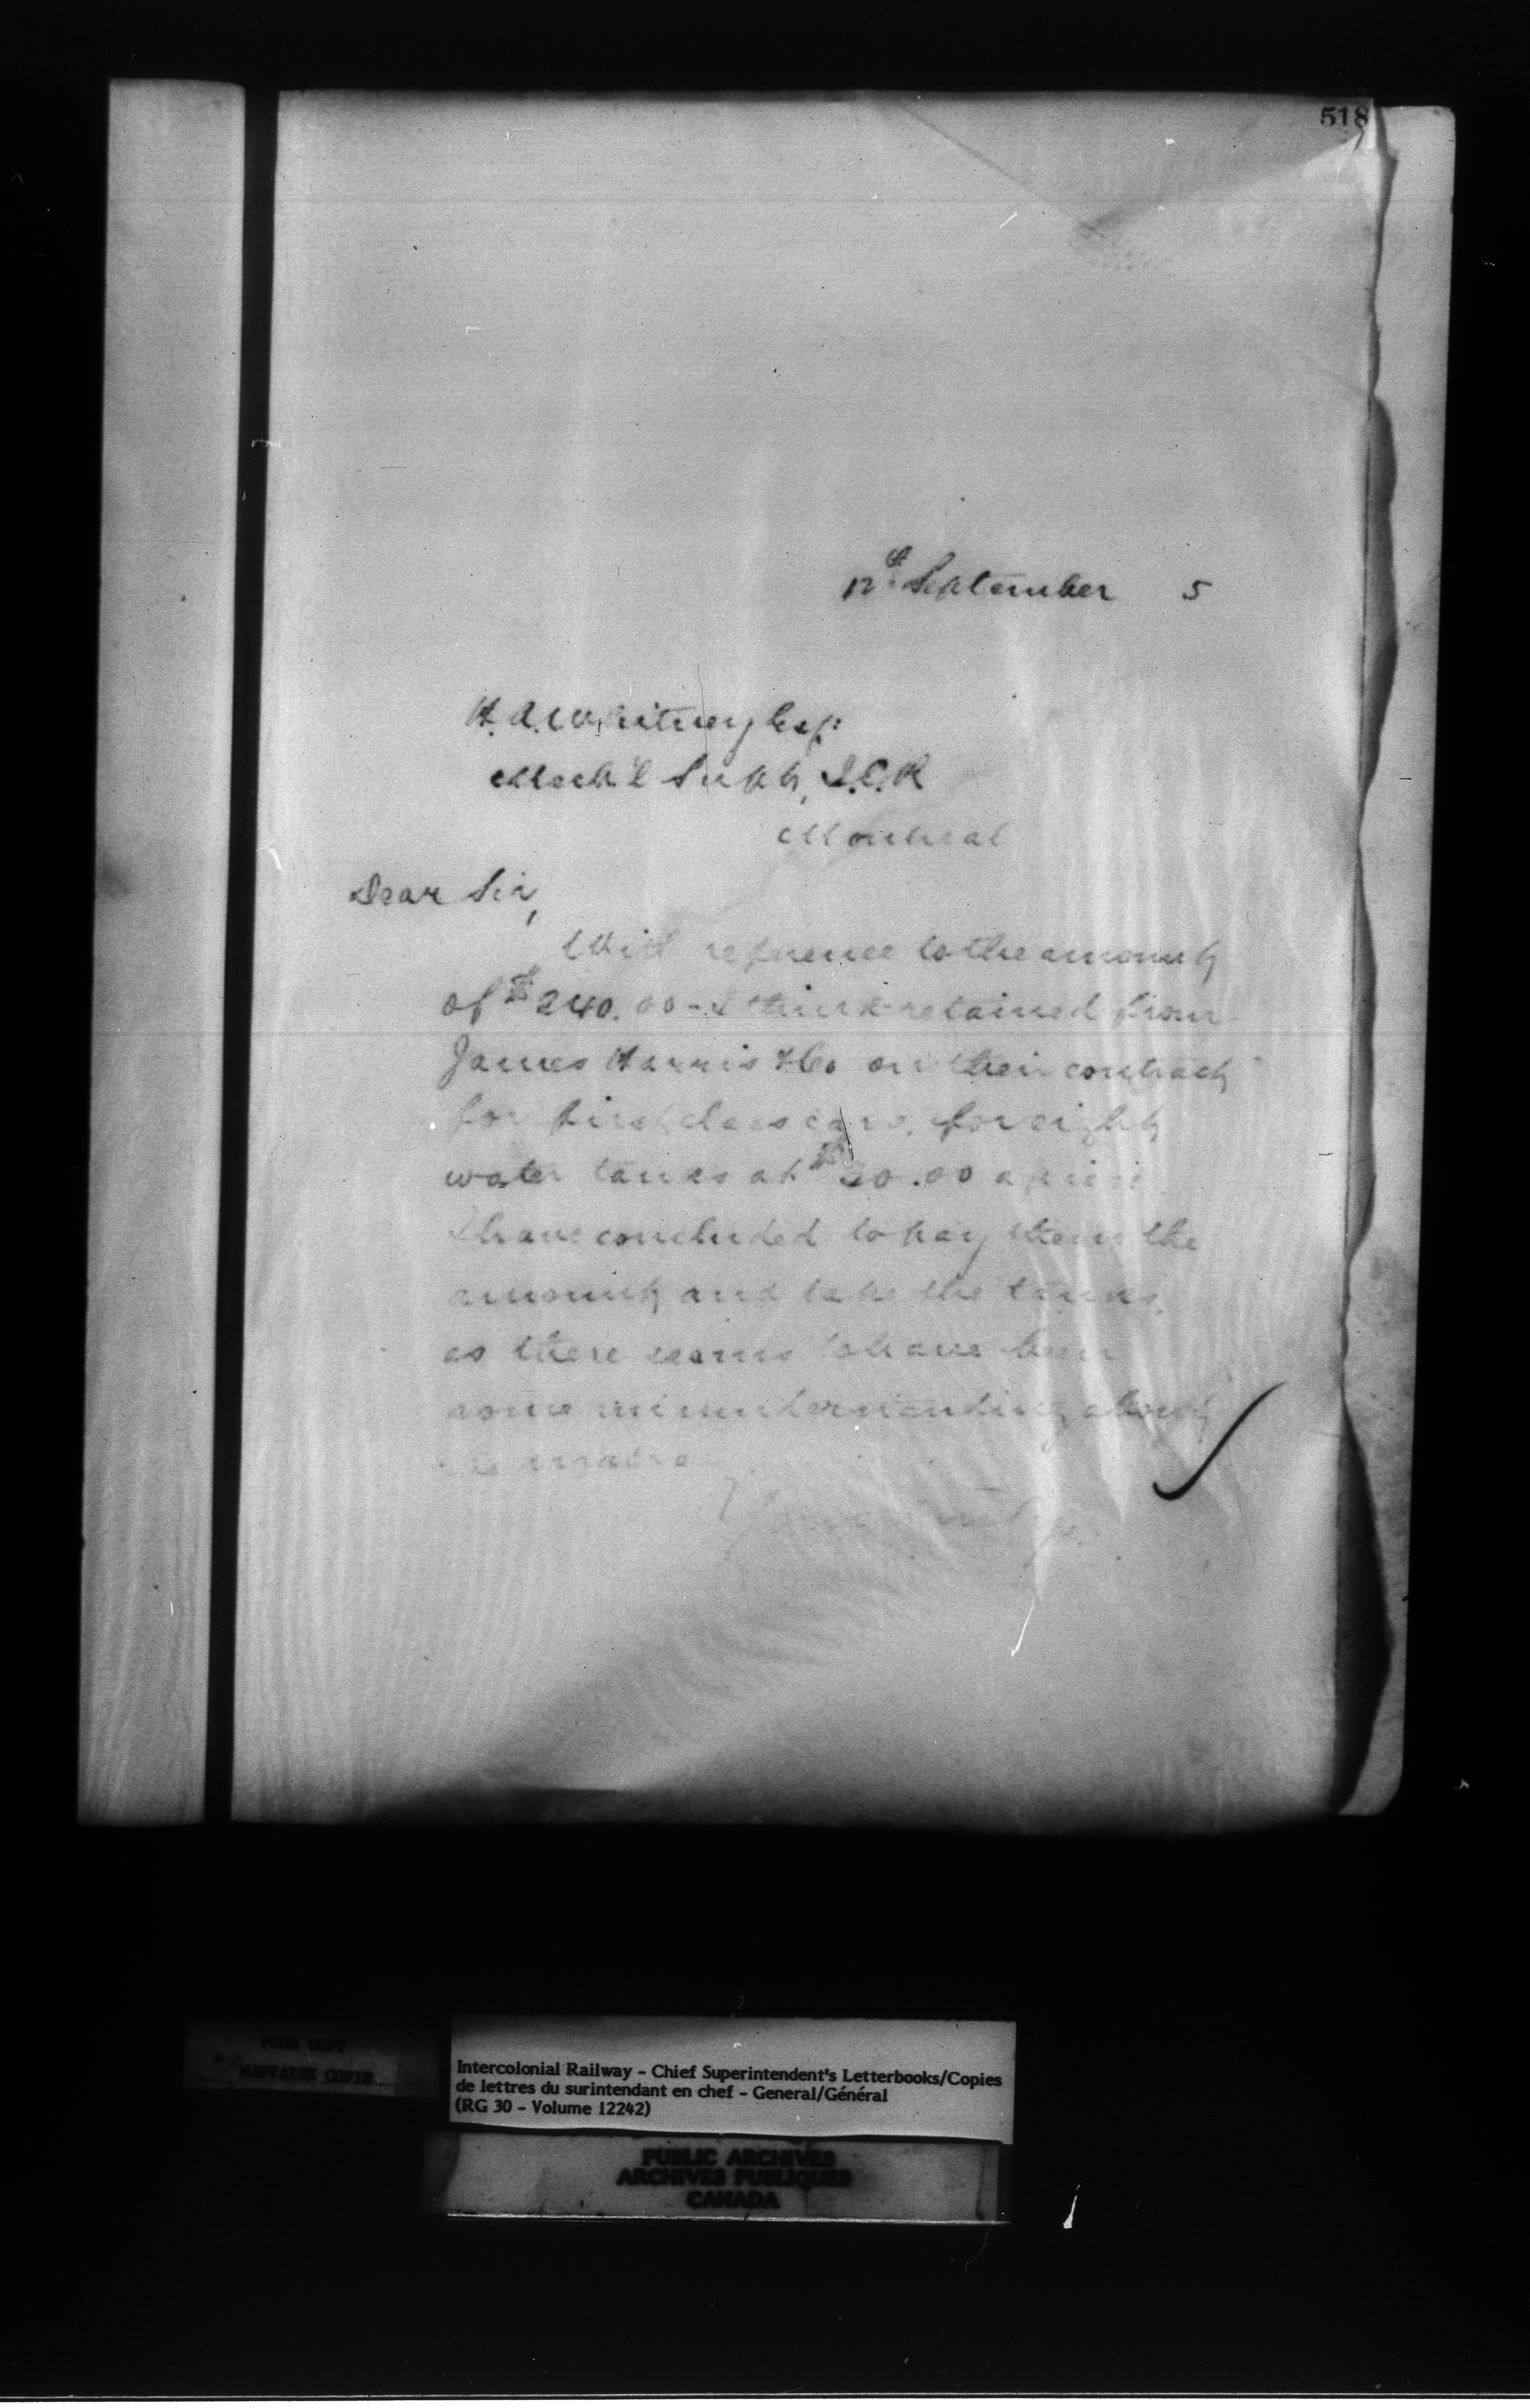 518
12th September 5
H. A. Whitney Esq:
Mech'l Supt, I.C.R
Montreal
Dear Sir,
With reference to the amount
of $240.00 - I think retained from
James Harris & Co on their contract
for first class cars, for eight
water tanks at $30.00 apiece
I have concluded to pay them the
amount and take the tanks,
as there seems to have been
some misunderstanding about
Yours truly
POOR COPY
MAUVAISE COPIE
Intercolonial Railway - Chief Superintendent's Letterbooks/Copies
de lettres du surintendant en chef - General/Général
(RG 30 - Volume 12242)
PUBLIC ARCHIVES
ARCHIVES PUBLIQUES
CANADA